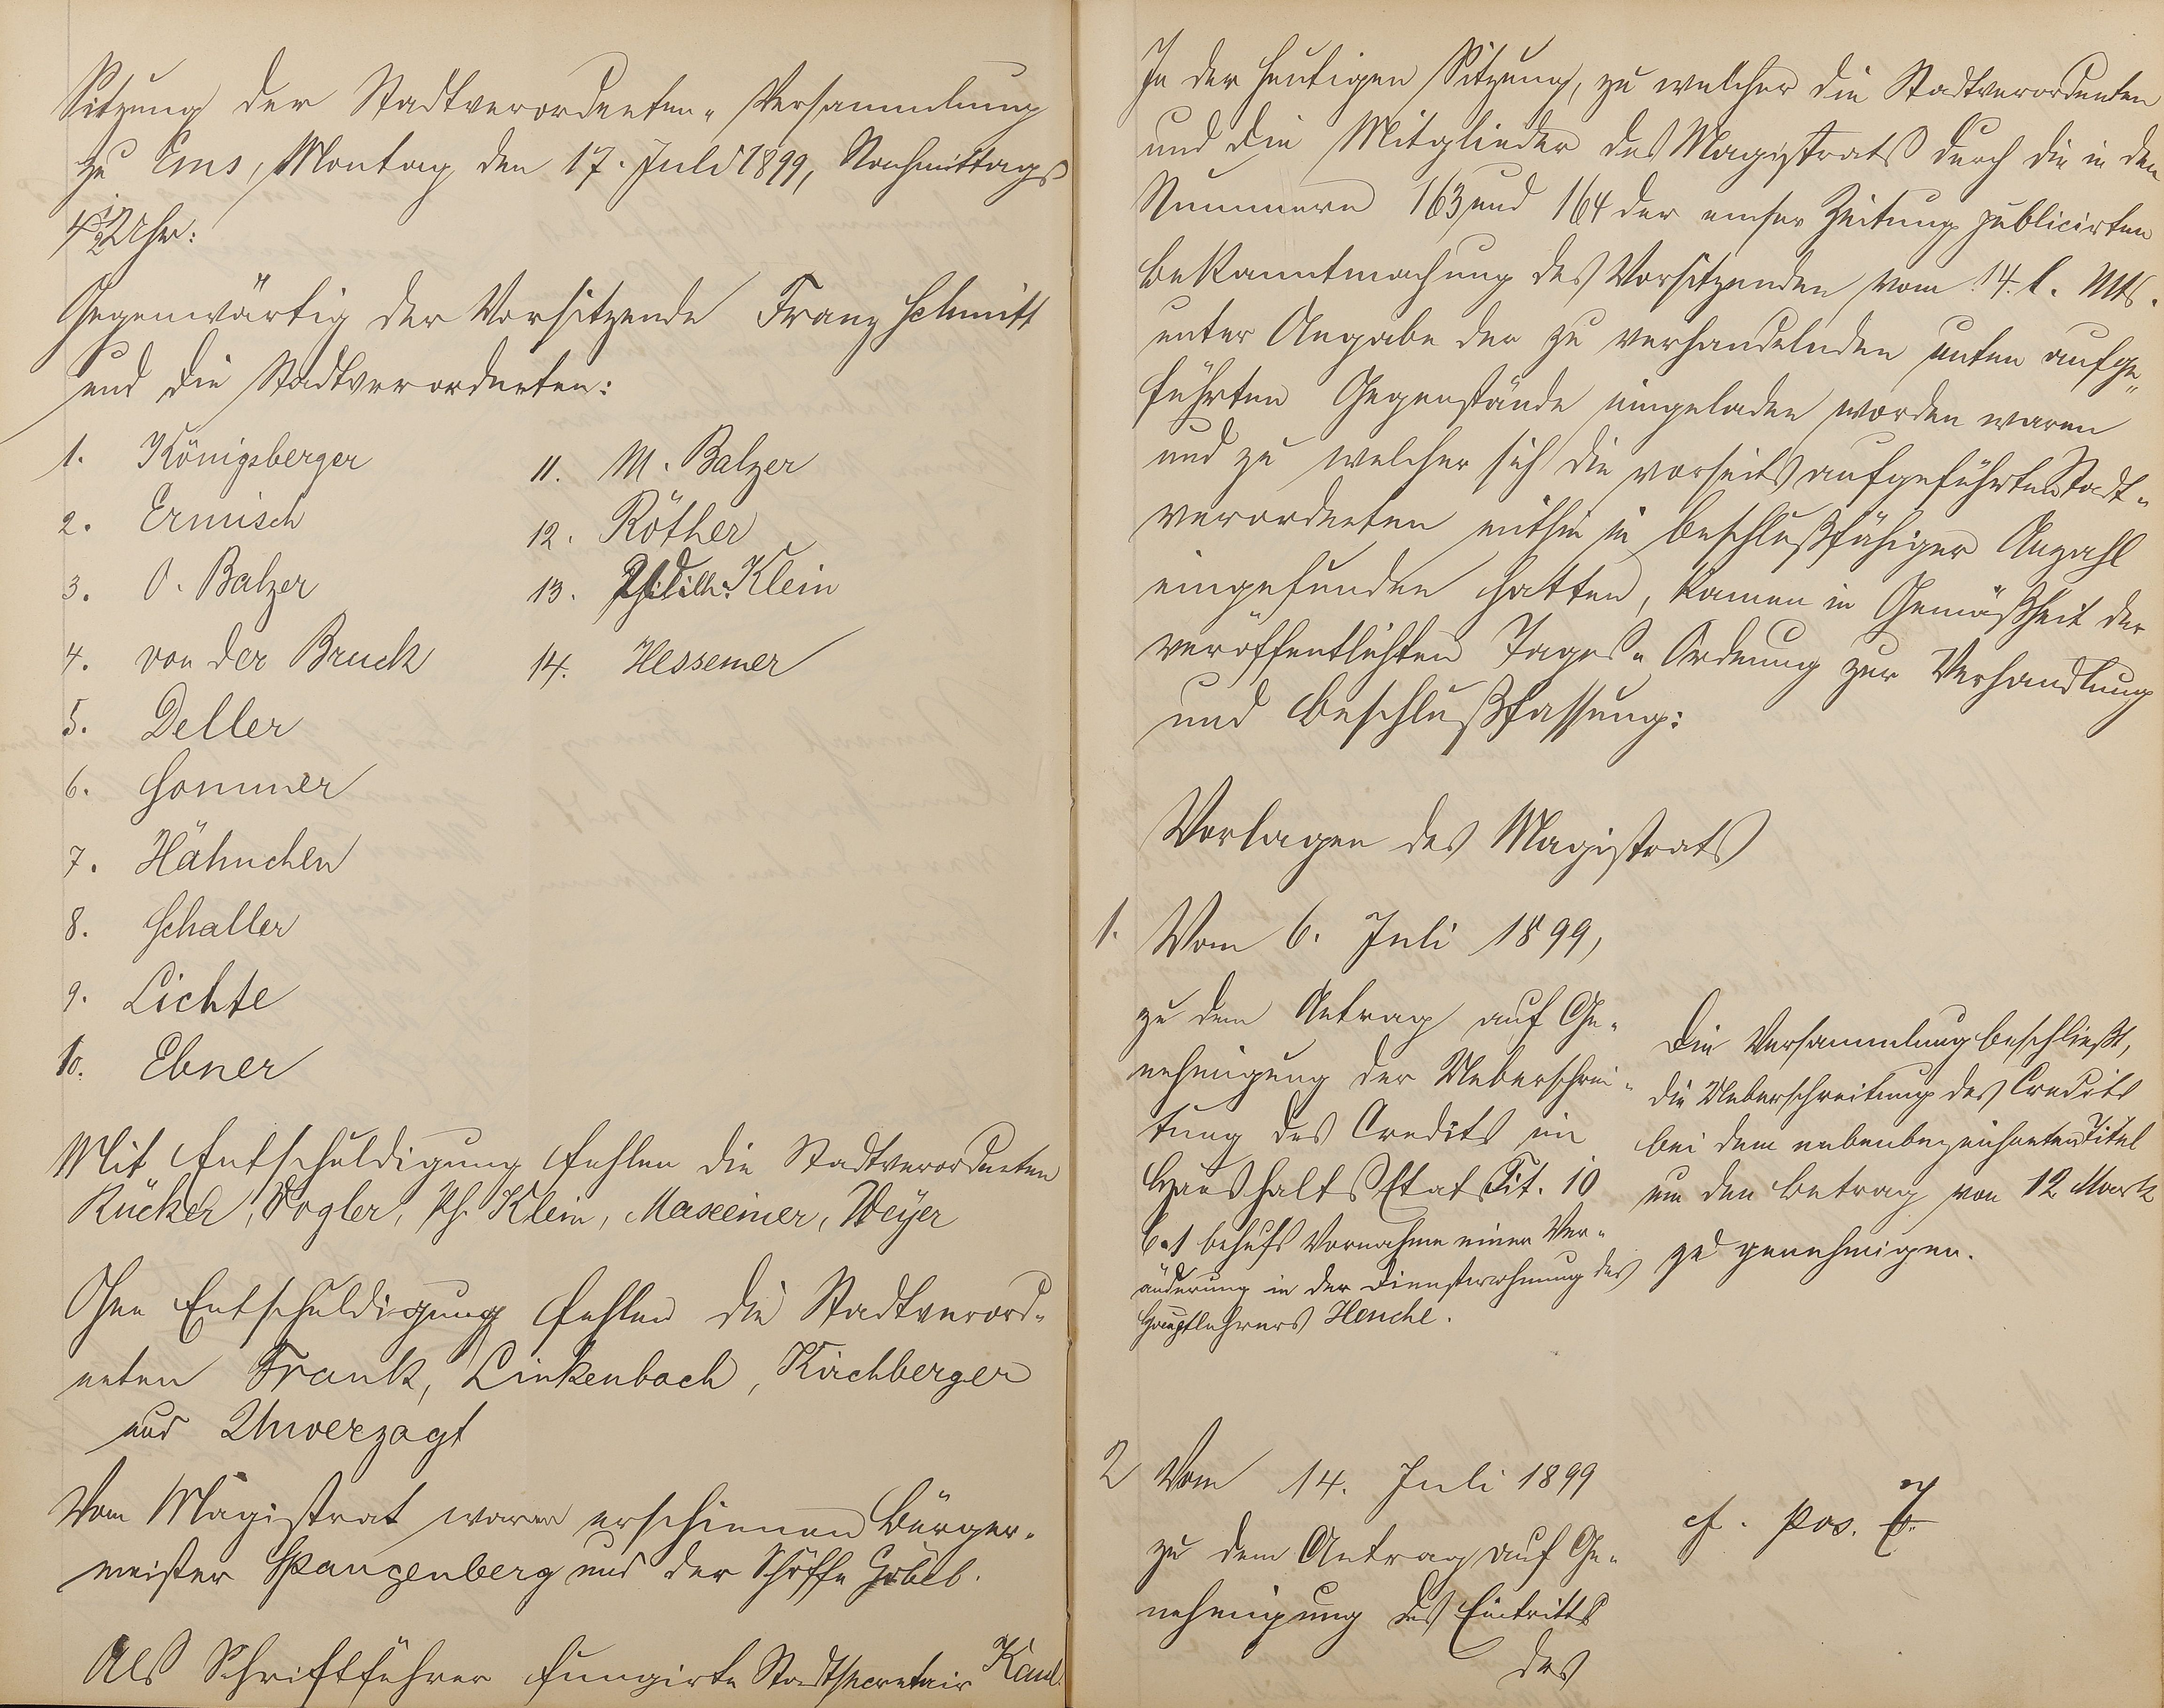 Sitzung der Stadtverordneten-Versammlung
zu Ems, Montag den 17. Juli 1899, Nachmittags
4 1/2 Uhr:
Gegenwärtig der Vorsitzende Franz Schmitt
und die Stadtverordneten:
1. Königsberger
2. Ermisch
3. O. Balzer
4. von der Bruck
5. Deller
6. Sommer
7. Hähnchen
8. Schaller
9. Lichte
10. Ebner
11. M. Balzer
12. Röther
13. Wilh. Klein
14. Hessemer
Mit Entschuldigung fehlen die Stadtverordneten
Rücker, Vogler, Ph. Klein, Maxeiner, Weyer
Ohne Entschuldigung fehlen die Stadtverord-
neten Frank, Linkenbach, Kirchberger
und Unverzagt
Vom Magistrat waren erschienen Bürger-
meister Spangenberg und der Schöffe Göbel.
Als Schriftführer fungirte Stadtsecretair Kaul.
In der heutigen Sitzung, zu welcher die Stadtverordneten
und die Mitglieder des Magistrats durch die in den
Nummern 163 und 164 der emser Zeitung publicirten
Bekanntmachung des Vorsitzenden vom 14. l. Mts.
unter Angabe der zu verhandelnden unten aufge-
führten Gegenstände eingeladen worden waren
und zu welcher sich die vorseits aufgeführten Stadt-
verordneten mithin in beschlußfähiger Anzahl
eingefunden hatten, kamen in Gemäßheit der
veröffentlichten Tages-Ordnung zur Verhandlung
und Beschlußfassung:
Vorlagen des Magistrats
1. Vom 6. Juli 1899,
zu dem Antrag auf Ge-
nehmigung der Ueberschrei-
tung des Credits im
Haushalts Etat Tit. 10
b.1 behufs Vornahme einer Ver-
änderung in der Dienstwohnung des
Hauptlehrers Henche.
Die Versammlung beschließt,
die Ueberschreitung des Credits
bei dem nebenbezeichneten Titel
um den Betrag von 12 Mark
zu genehmigen.
2 Vom 14. Juli 1899
zu dem Antrag auf Ge-
nehmigung des Eintritts
des
cf. pos. 7